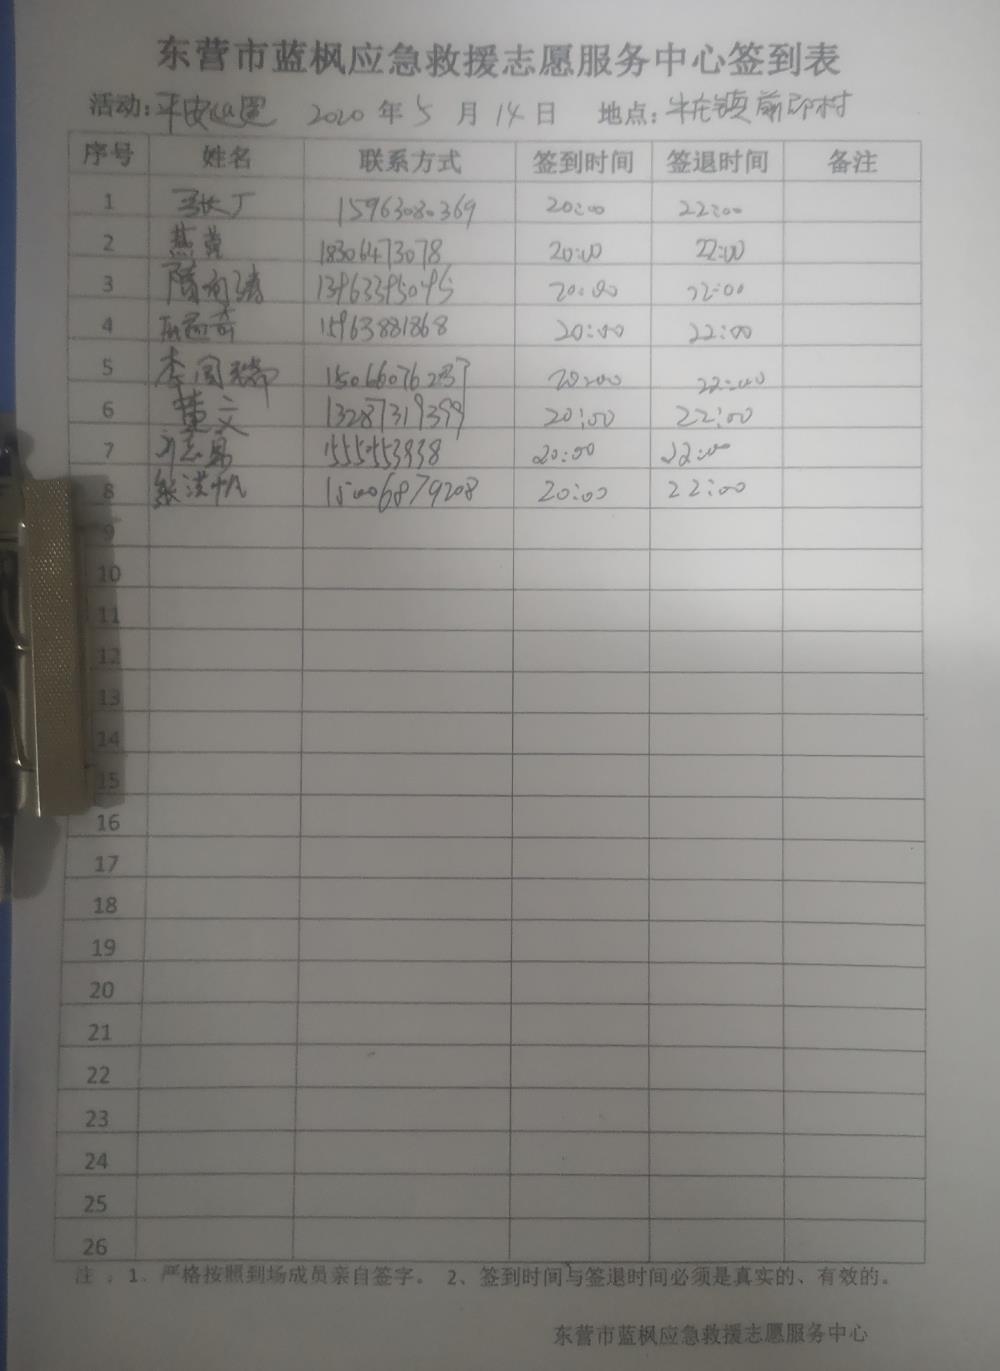 东营市蓝枫应急救援志愿服务中心签到表
活动：平安心愿 2020 年 5 月 14 日 地点：牛庄镇前邵村
序号 姓名 联系方式 签到时间 签退时间 备注
1 张丁 15963080369 20:00 22:00
2 燕 18306473078 20:00 22:00
3 隋 13963395095 20:00 22:00
4 15963881868 20:00 22:00
5 李国瑞 20:00 22:00
6 13287319399 20:00 22:00
7 20:00 22:00
8 张洪帆 15006879208 20:00 22:00
9
10
11
12
13
14
15
16
17
18
19
20
21
22
23
24
25
26
注：1、严格按照到场成员亲自签字。 2、签到时间与签退时间必须是真实的、有效的。
东营市蓝枫应急救援志愿服务中心